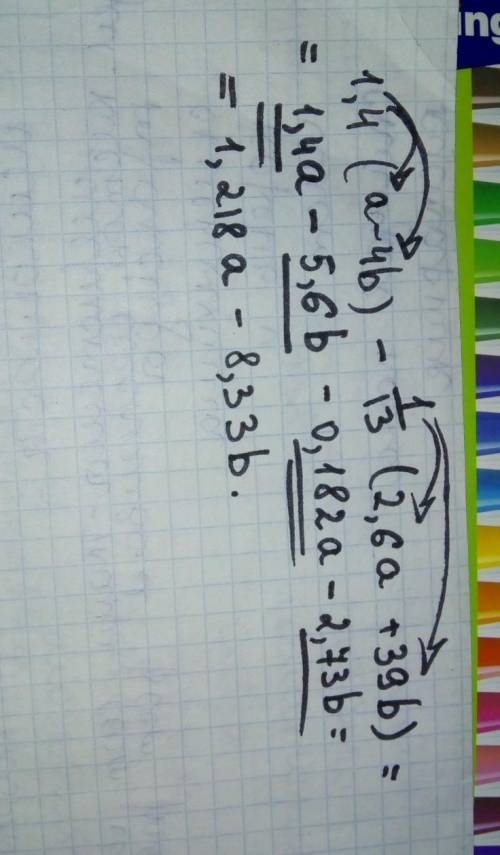 1,4 (a-4b) - 1/13 (2,6a + 39b) =
= 1,4a - 5,6b - 0,182a - 2,73b =
= 1,218a - 8,33b.